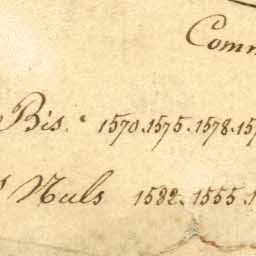 Comm
Bis. 1570.1575.1578.15
Nuls 1582.1555.1